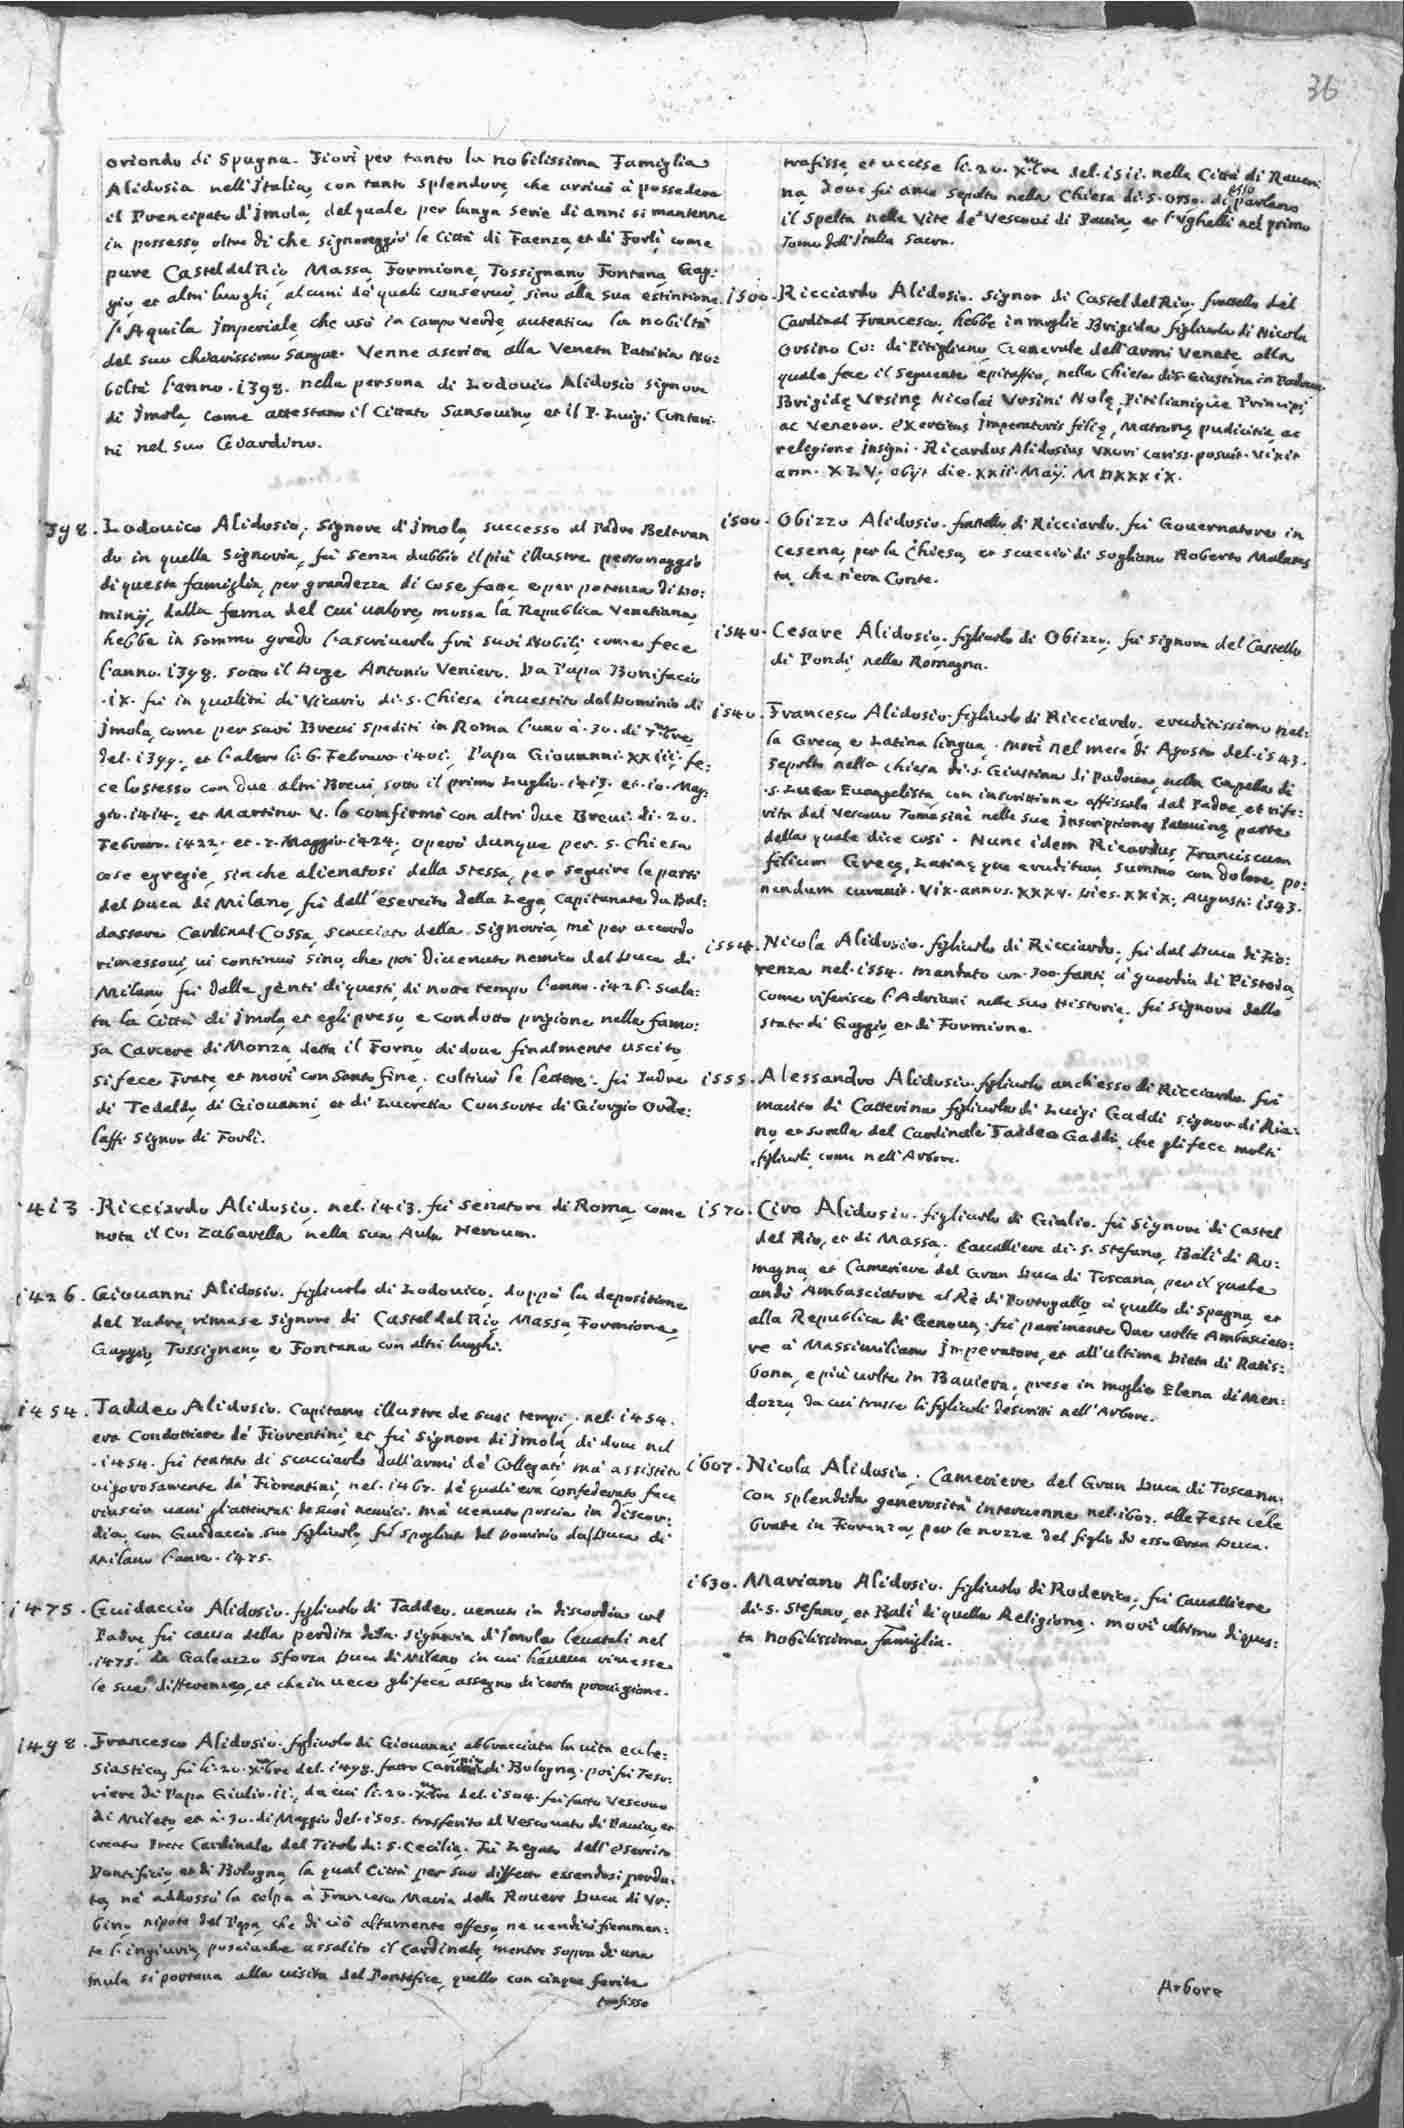 36
oriondo di Spagna. Fiorì per tanto la nobilissima Famiglia
Alidosia nell'Italia, con tanto splendore, che arriuò à possedere
il Prencipato d'Jmola, del quale per lunga serie di anni si mantenne
in possesso, oltre di che signoreggiò le Città di Faenza, et di Forlì, come
pure Castel del Rio, Massa, Formione, Tossignano, Fontana, Gag:
gio, et altri luoghi, alcuni de quali conseruò, sino alla sua estintione.
L'Aquila Jmperiale, che usò in campo verde, autentica la nobiltà
del suo chiarissimo sangue. Venne ascritta alla Veneta Patritia No:
biltà l'anno. i398. nella persona di Lodouico Alidosio signore
di Jmola, come attestano il Cittato Sansouino, et il P. Luigi Contari:
ni nel suo Giardino.
i398. Lodouico Alidosio, Signore d'Jmola, successo al Padre Beltran
do in quella Signoria, fù senza dubbio il più illustre personaggio
di questa famiglia, per grandezza di cose fatte, e per potenza di Do:
minij, dalla fama del cui ualore, mossa la Republica Venetiana,
hebbe in sommo grado l'ascriuerlo frà suoi Nobili, come fece
l'anno. i398. sotto il Doge Antonio Veniero. Da Papa Bonifacio
.IX. fù in qualità di Vicario di S. Chiesa inuestito del Dominio di
Jmola, come per suoi Breui spediti in Roma l'uno à. 30. di 7mbre
del. i399. et l'altro li. 6. Febraro i40i. Papa Giouanni XXiii. fe:
ce lo stesso con due altri Breui, sotto il primo Luglio. i4i3. et. io. Mag:
gio. i4i4. et Martino V. lo confirmò con altri due Breui. di. 20.
Febraro. i422. et. 7. Maggio. i424. operò dunque per S. Chiesa
cose egregie, sin che alienatosi dalla stessa, per seguire le parti
del Duca di Milano, fù dall'esercito della Lega, Capitanato da Bal:
dassare Cardinal Cossa, scacciato della Signoria, mà per accordo
rimessoui, ui continuò sino, che poi diuenuto nemico del Duca di
Milano fù dalle genti di questi, di notte tempo l'anno. i426. scala:
ta la Città di Jmola, et egli preso, e condotto prigione nella famo:
sa Carcere di Monza, detta il Forno, di doue finalmente uscito,
si fece Frate, et morì con Santo fine. coltiuò le lettere. fù Padre
di Tedaldo, di Giouanni, et di Lucretia Consorte di Giorgio Orde:
laffi Signor di Forlì.
i4i3. Ricciardo Alidosio. nel. i4i3. fù Senatore di Roma, come
nota il Co: Zabarella nella sua Aula Heroum.
i426. Giouanni Alidosio. figliuolo di Lodouico, doppò la depositione
del Padre, rimase Signore di Castel del Rio, Massa, Formione,
Gaggio, Tossignano, e Fontana con altri luoghi.
i454. Taddeo Alidosio. Capitano illustre de suoi tempi. nel. i454.
era Condottiere de' Fiorentini, et fù Signore di Jmola, di doue nel
.i454. fù tentato di scacciarlo dall'armi de' Collegati, mà assistito
uigorosamente da' Fiorentini, nel. i467. de quali era confederato fece
riuscir uani gl'attentati de suoi nemici. mà uenuto poscia in discor:
dia, con Guidaccio suo figliuolo, fù spogliato del Dominio dal Duca di
Milano l'anno. i475.
i475. Guidaccio Alidosio. figliuolo di Taddeo. uenuto in discordia col
Padre fù causa della perdita della Signoria d'Jmola leuatali nel
.i475. da Galeazzo Sforza Duca di Milano, in cui haueua rimesse
le sue differenze, et che in uece gli fece assegno di certa prouigione.
i498. Francesco Alidosio. figliuolo di Giouanni, abbracciata la uita eccle:
siastica, fù li. 20. Xmbre del. i498. fatto Canonico di Bologna. poi fù Teso:
riere di Papa Giulio. ii., da cui li. 20. Xmbre del. i504. fù fatto Vescouo
di Mileto, et à. 30. di Maggio del. i505. trasferito al Vescouato di Pauia, et
creato Prete Cardinale del Titolo di S. Cecilia. Fù Legato dell'esercito
Pontificio, et di Bologna, la qual Città per suo diffetto essendosi perdu:
ta, ne addossò la colpa à Francesco Maria della Rouere Duca di Vr:
bino, nipote del Papa, che di ciò altamente offeso, ne uendicò fieramen:
te l'ingiuria, posciache assalito il Cardinale, mentre sopra di una
mula si portaua alla uisita del Pontefice, quello con cinque ferite
trafisse
trafisse, et uccise li. 20. Xmbre del. i5ii. nella Città di Rauen:
na, doue fù anco sepolto nella Chiesa di S. Orso. di esso parlano
il Spelta nelle Vite de' Vescoui di Pauia, et l'Vghelli nel primo
Tomo dell'Italia Sacra.
i500. Ricciardo Alidosio. Signor di Castel del Rio, fratello del
Cardinal Francesco, hebbe in moglie Brigida figliuola di Nicola
Orsino Co: di Pitigliano, Generale dell'armi Venete, alla
quale fece il seguente epitaffio, nella Chiesa di S. Giustina in Padoua.
Brigidę Vrsinę Nicolai Vrsini Nolę, Pitilianique Principi
ac Venetor. exercitus Jmperatoris filię, Matronę pudicitia, ac
relegione insigni. Ricardus Alidosius Vxori cariss. posuit. Vixit
ann. XLV. obijt die. xxii. May. MDXXXIX.
i500. Obizzo Alidosio. fratello di Ricciardo. fù Gouernatore in
Cesena, per la Chiesa, et scacciò di Sogliano Roberto Malates
ta, che n'era Conte.
i540. Cesare Alidosio. figliuolo di Obizzo, fù Signore del Castello
di Pondi, nella Romagna.
i540. Francesco Alidosio. figliuolo di Ricciardo, eruditissimo nel:
la Greca, e Latina lingua. morì nel mese di Agosto del. i543.
sepolto nella chiesa di S. Giustina di Padoua, nella Capella di
S. Luca Euangelista, con inscrittione affissale dal Padre, et rife:
rita dal Vescouo Tomasini nelle sue Jnscriptiones Patauinę, parte
della quale dice così. Nunc idem Ricardus, Franciscum
filium Grecę, Latinę que eruditum, summo con dolore, po:
nendum curauit. Vix. annos. XXXV. Dies. XXIX. Augusti. i543.
i554. Nicola Alidosio. figliuolo di Ricciardo. fù dal Duca di Fio:
renza nel. i554. mandato con. 300. fanti, à guardia di Pistoia,
come riferisce l'Adriani nelle sue Historie. fù Signore dello
stato di Gaggio, et di Formione.
i555. Alessandro Alidosio. figliuolo anch'esso di Ricciardo. fù
marito di Catterina figliuola di Luigi Gaddi Signor di Ria:
no, et sorella del Cardinale Taddeo Gaddi, che gli fece molti
figliuoli, come nell'Arbore.
i570. Ciro Alidosio. figliuolo di Giulio. fù Signore di Castel
del Rio, et di Massa. Caualliere di S. Stefano, Balì di Ro:
magna, et Cameriere del Gran Duca di Toscana, per il quale
andò Ambasciatore al Rè di Portogallo, à quello di Spagna, et
alla Republica di Genoua. fù parimente due uolte Ambasciato:
re à Massimiliano Jmperatore, et all'ultima Dieta di Ratis:
bona, e più uolte in Bauiera. prese in moglie Elena di Men:
dozza, da cui trasse li figliuoli descritti nell'Arbore.
i607. Nicola Alidosio. Cameriere del Gran Duca di Toscana.
con splendida generosità interuenne nel. i607. alle Feste cele
brate in Fiorenza, per le nozze del figlio di esso Gran Duca.
i630. Mariano Alidosio. figliuolo di Roderico, fù Caualliere
di S. Stefano, et Balì di quella Religione. morì ultimo di ques:
ta nobilissima famiglia.
Arbore